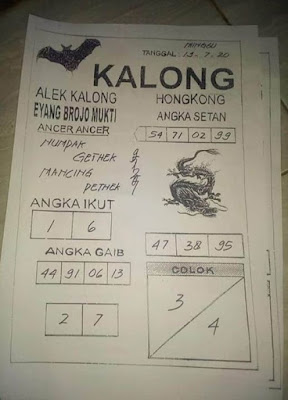 MINGGU
TANGGAL : 19-7-20
KALONG
ALEK KALONG
EYANG BROJO MUKTI
ANCER ANCER
NUMPAK
GETHEK
MANCING
PETHEK
ANGKA IKUT
1 6
ANGKA GAIB
44 91 06 13
2 7
HONGKONG
ANGKA SETAN
54 71 02 99
47 38 95
COLOK
3
4